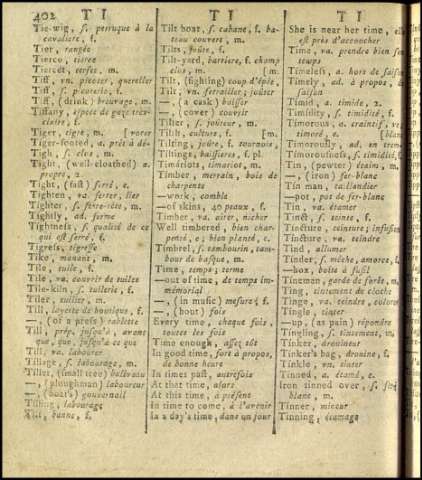 402 T I T I T I
Tie-wig, s. perruque à la
cavaliere, f.
Tier, rangée
Tierce, tierce
Tiercet, tercet, m.
Tiff, vn. picoter, quereller
Tiff, s. picoterie, f.
Tiff, (drink) breuvage, m.
Tiffany, espece de gaze très-
claire, f.
Tiger, tigre, m.
Tiger-footed, a. prêt à dé-
[vorer
Tigh, s. clos, m.
Tight, (well-cloathed) a.
propre, 2.
Tight, (fast) serré, e.
Tighten, va. serrer, lier
Tighter, s. serre-tête, m.
Tightly, ad. ferme
Tightness, s. qualité de ce
qui est serré, f.
Tigress, tigresse
Tike, manant, m.
Tile, tuile, f.
Tile, va. couvrir de tuiles
Tile-kiln, s. tuilerie, f.
Tiler, tuilier, m.
Till, layette de boutique, f.
—, (of a press) tablette
Till, prép. jusqu'à, avant
que, que, jusqu'à ce que
Till, va. labourer
Tillage, s. labourage, m.
Tiller, (small tree) baliveau
—, (ploughman) laboureur
—, (boat's) gouvernail
Tilling, labourage
Tilt, banne, f.
Tilt boat, s. cabane, f. ba-
teau couvert, m.
Tilts, joûte, f.
Tilt-yard, barriere, f. champ
clos, m. [m.
Tilt, (fighting) coup d'épée,
Tilt, vn. ferrailler; joûter
—, (a cask) baisser
—, (cover) couvrir
Tilter, s. joûteur, m.
Tilth, culture, f. [m.
Tilting, joûte, f. tournois,
Tiltings, baissiere, f. pl.
Timariots, timariot, m.
Timber, merrain, bois de
charpente
—work, comble
—of skins, 40 peaux, f.
Timber, va. airer, nicher
Well timbered, bien char-
penté, e; bien planté, e.
Timbrel, s. tambourin, tam-
bour de basque, m.
Time, temps; terme
—out of time, de temps im-
mémorial
—, (in music) mesure, f.
—, (bout) fois
Every time, chaque fois,
toutes les fois
Time enough, assez tôt
In good time, fort à propos,
de bonne heure
In times past, autrefois
At that time, alors
At this time, à présent
In time to come, à l'avenir
In a day's time, dans un jour
She is near her time, elle
est près d'accoucher
Time, va. prendre bien son
temps
Timeless, a. hors de saison
Timely, ad. à propos, de
saison
Timid, a. timide, 2.
Timidity, s. timidité, f.
Timorous, a. craintif, ve;
timoré, e. [blant
Timorously, ad. en trem-
Timorousness, s. timidité, f.
Tin, (pewter) étaim, m.
—, (iron) fer-blanc
Tin man, taillandier
—pot, pot de fer-blanc
Tin, va. étamer
Tinct, s. teinte, f.
Tincture, teinture; infusion
Tincture, va. teindre
Tind, allumer
Tinder, s. mêche, amorce, f.
—box, boîte à fusil
Tineman, garde de forêt, m.
Ting, tintement de cloche
Tinge, va. teindre, colorer
Tingle, tinter
—up, (as pain) répondre
Tingling, s. tintement, m.
Tinker, drouineur
Tinker's bag, drouine, f.
Tinkle, vn. tinter
Tinned, a. étamé, e.
Iron tinned over, s. fer
blanc, m.
Tinner, mineur
Tinning, étamage